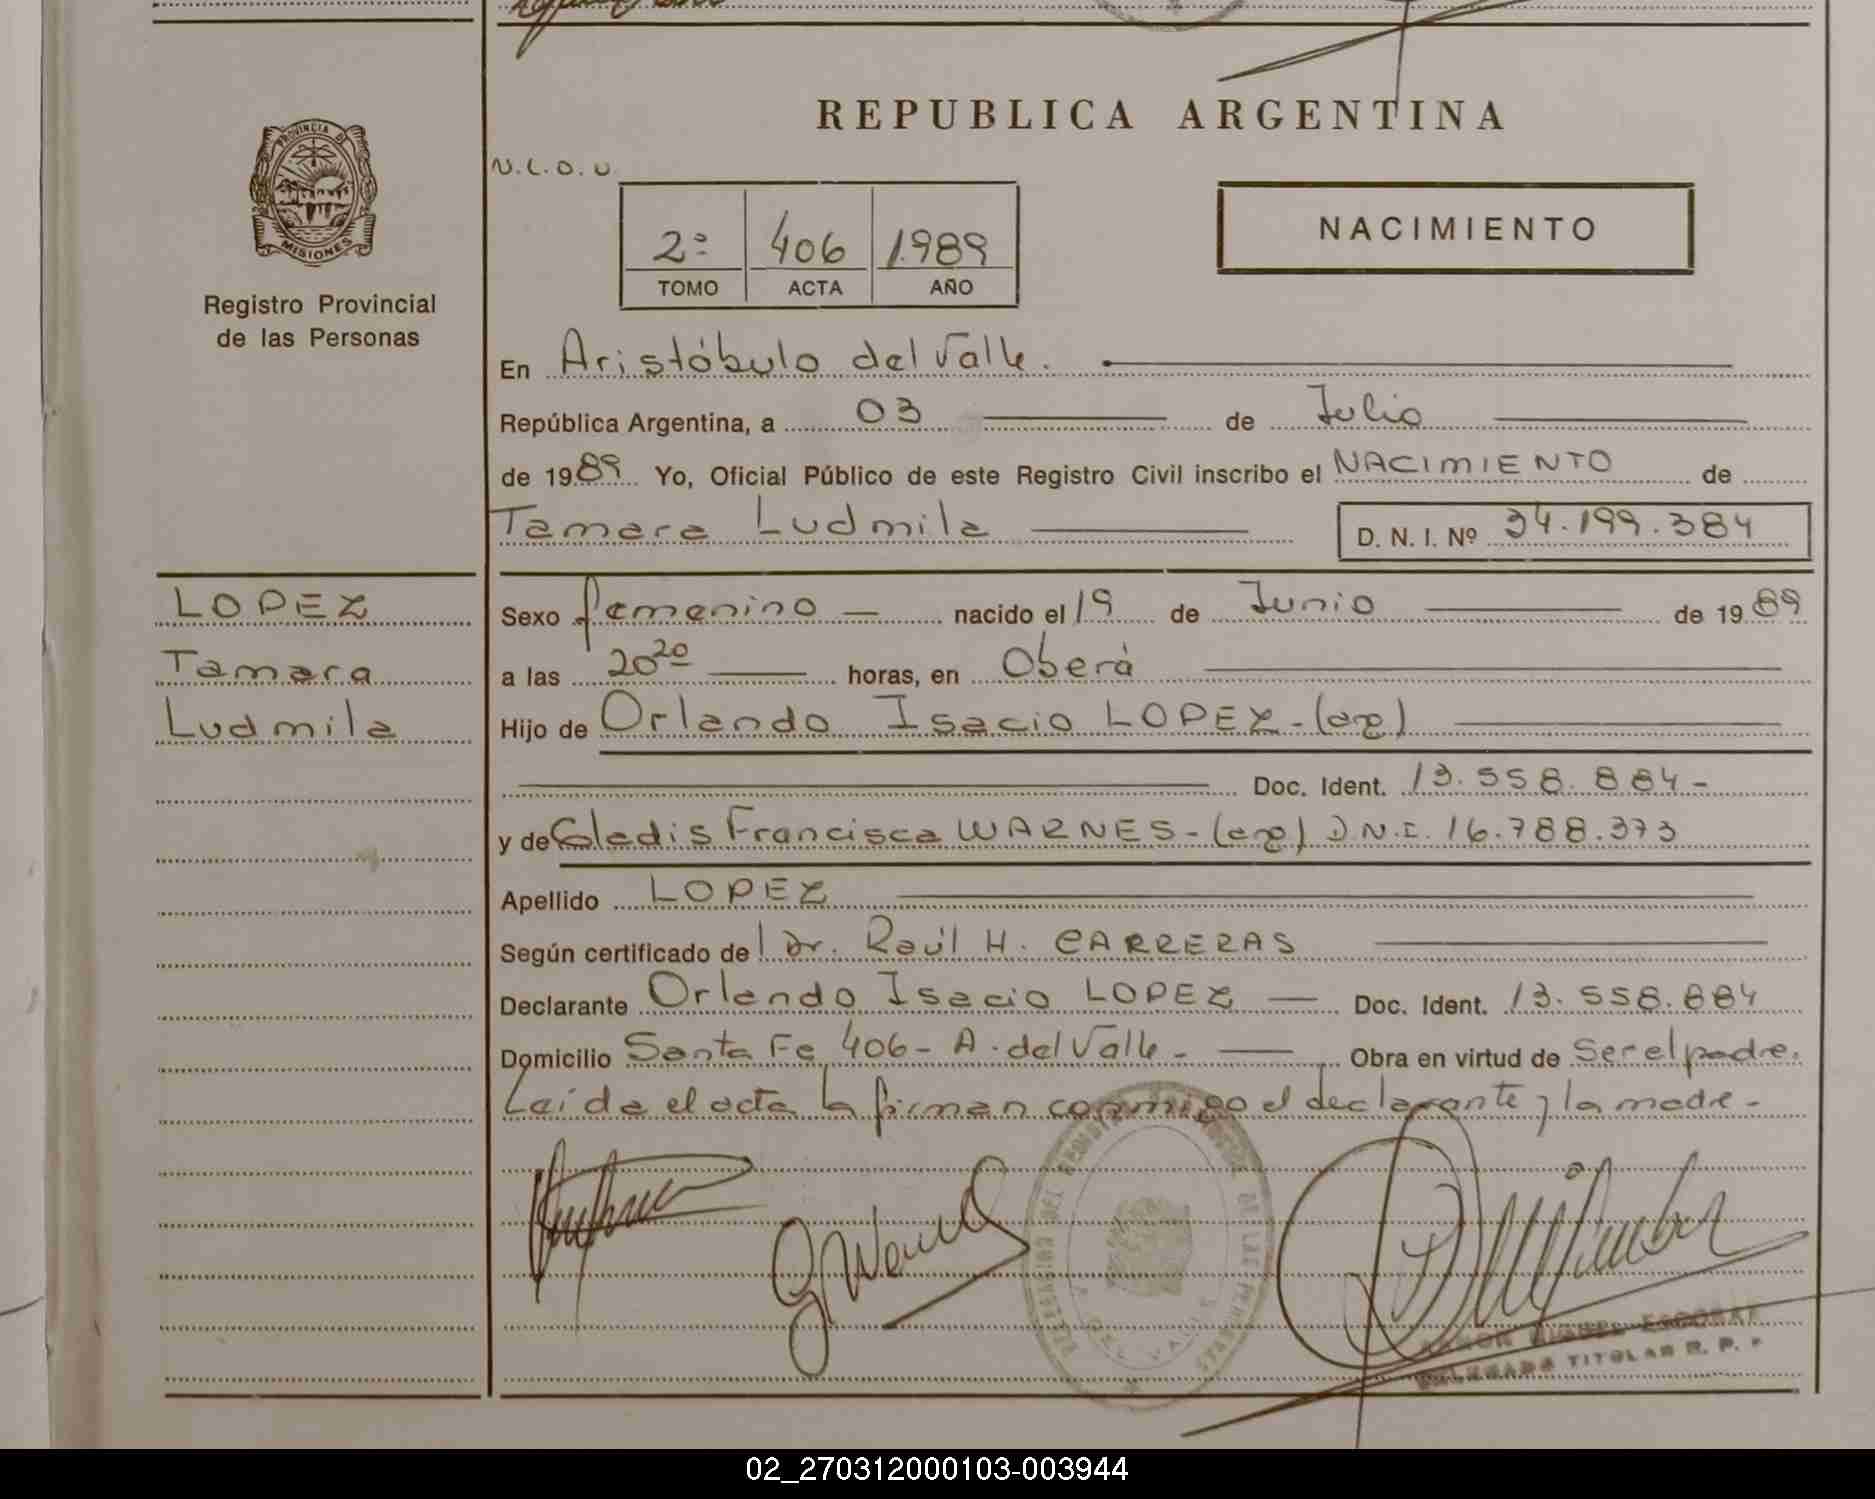 REPUBLICA ARGENTINA
PROVINCIA DE
MISIONES
Registro Provincial
de las Personas
N.L.O.U.
2º 406 1989
TOMO ACTA AÑO
NACIMIENTO
En Aristóbulo del Valle.
República Argentina, a 03 de Julio
de 1989 Yo, Oficial Público de este Registro Civil inscribo el NACIMIENTO de
Tamara Ludmila D. N. I. Nº 34.199.384
LOPEZ
Tamara
Ludmila
Sexo femenino nacido el 19 de Junio de 1989
a las 20 20 horas, en Oberá
Hijo de Orlando Isacio LOPEZ - (arg)
Doc. Ident. 13.558.884 -
y de Gladis Francisca WARNES - (arg) D.N.I. 16.788.373
Apellido LOPEZ
Según certificado de Dr. Raúl H. CARRERAS
Declarante Orlando Isacio LOPEZ Doc. Ident. 13.558.884
Domicilio Santa Fe 406 - A. del Valle - Obra en virtud de Ser el padre.
Leída el acta la firman conmigo el declarante y la madre -
DEL VALLE
DE LAS PERSONAS
ESCOBAR
TITULAR R. P. P
02_270312000103-003944